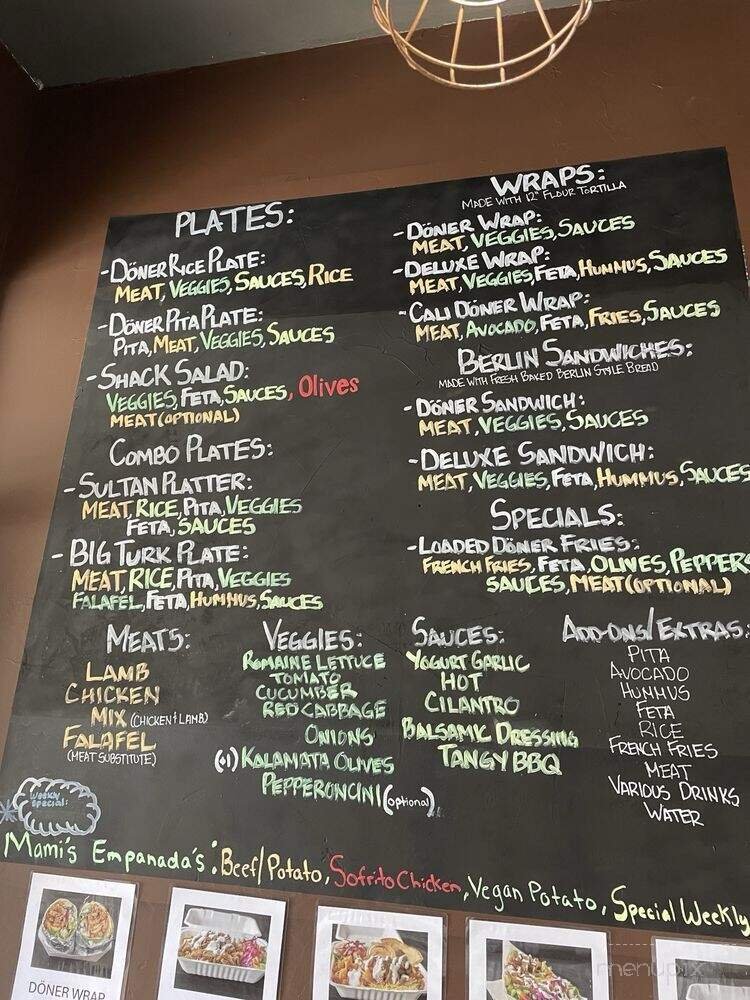 PLATES:
-DÖNER RICE PLATE:
MEAT, VEGGIES, SAUCES, RICE
-DÖNER PITA PLATE:
PITA, MEAT, VEGGIES, SAUCES
-SHACK SALAD:
VEGGIES, FETA, SAUCES, Olives
MEAT (OPTIONAL)
COMBO PLATES:
-SULTAN PLATTER:
MEAT, RICE, PITA, VEGGIES
FETA, SAUCES
-BIG TURK PLATE:
MEAT, RICE, PITA, VEGGIES
FALAFEL, FETA, HUMMUS, SAUCES
WRAPS:
MADE WITH 12" FLOUR TORTILLA
-DÖNER WRAP:
MEAT, VEGGIES, SAUCES
-DELUXE WRAP:
MEAT, VEGGIES, FETA, HUMMUS, SAUCES
-CALI DÖNER WRAP:
MEAT, AVOCADO, FETA, FRIES, SAUCES
BERLIN SANDWICHES:
MADE WITH FRESH BAKED BERLIN STYLE BREAD
-DÖNER SANDWICH:
MEAT, VEGGIES, SAUCES
-DELUXE SANDWICH:
MEAT, VEGGIES, FETA, HUMMUS, SAUCES
SPECIALS:
-LOADED DÖNER FRIES:
FRENCH FRIES, FETA, OLIVES, PEPPERS
SAUCES, MEAT (OPTIONAL)
MEATS:
LAMB
CHICKEN
MIX (CHICKEN & LAMB)
FALAFEL
(MEAT SUBSTITUTE)
VEGGIES:
ROMAINE LETTUCE
TOMATO
CUCUMBER
RED CABBAGE
ONIONS
(+1) KALAMATA OLIVES
PEPPERONCINI (optional)
SAUCES:
YOGURT GARLIC
HOT
CILANTRO
BALSAMIC DRESSING
TANGY BBQ
ADD-ONS/EXTRAS:
PITA
AVOCADO
HUMMUS
FETA
RICE
FRENCH FRIES
MEAT
VARIOUS DRINKS
WATER
Weekly
Special:
Mami's Empanada's: Beef/Potato, Sofrito Chicken, Vegan Potato, Special Weekly
DÖNER WRAP
menupix